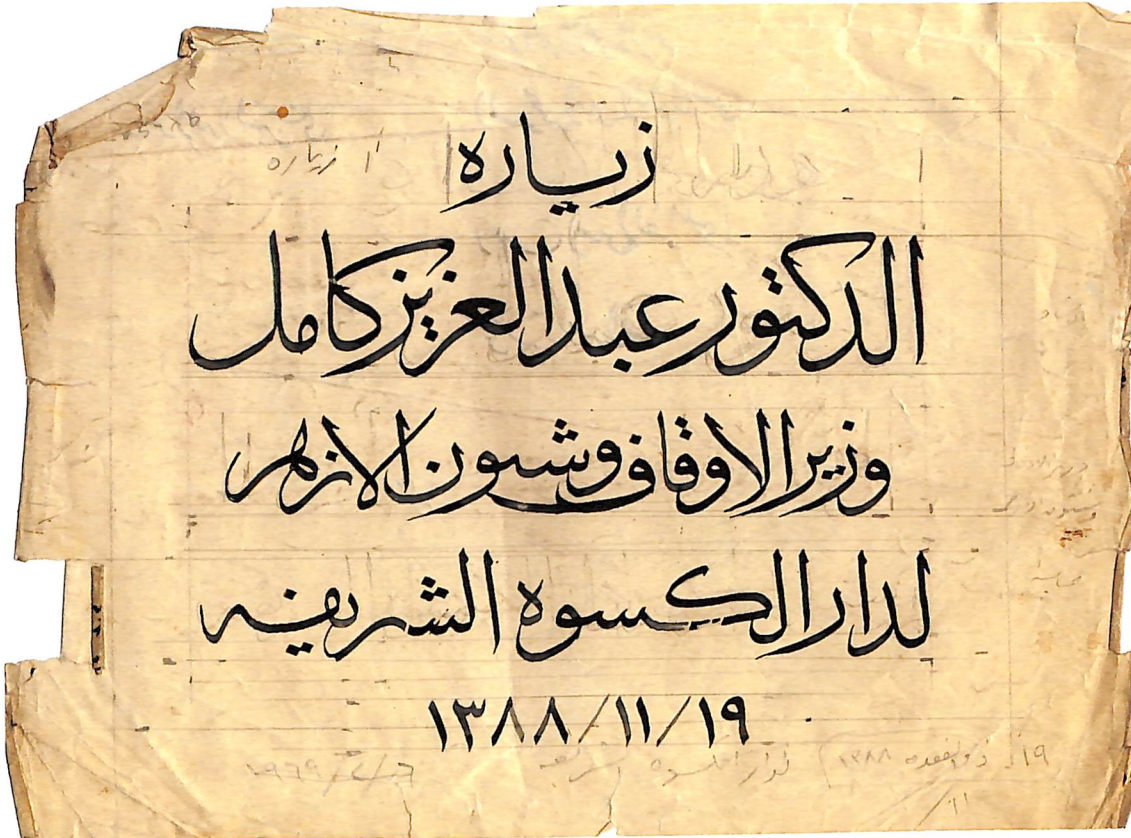 زياره
الدكتور عبد العزيز كامل
وزير الاوقاف وشئون الازهر
لدار الكسوه الشريفه
١٣٨٨/١١/١٩
زياره
١٩ ذو القعده ١٣٨٨ لدار الكسوه الشريفه